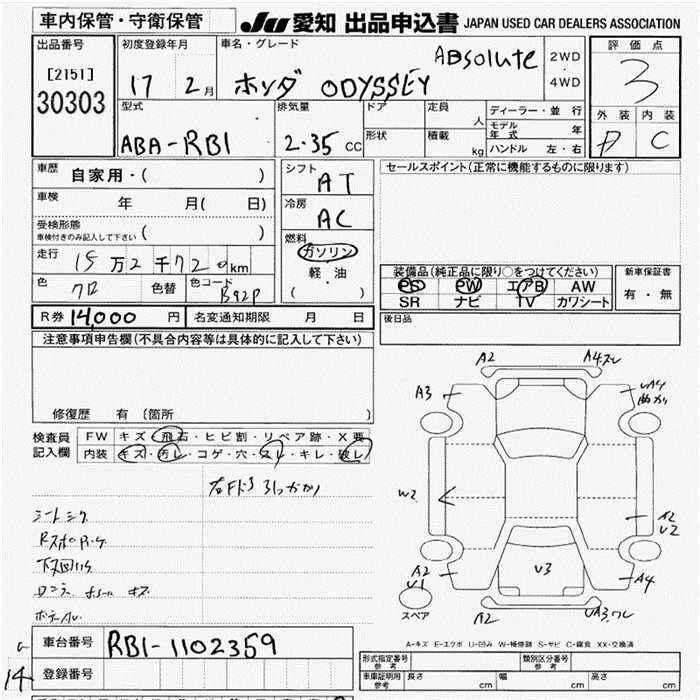 車内保管・守衛保管
JU 愛知 出品申込書 JAPAN USED CAR DEALERS ASSOCIATION
出品番号
[2151]
30303
初度登録年月
17 2月
車名・グレード
ホンダ ODYSSEY
ABsolute
2WD
・
4WD
評価点
3
外装 内装
D C
型式
ABA-RB1
排気量
2.35 CC
ドア
形状
定員
人
積載
kg
ディーラー・並行
モデル年式 年
ハンドル 左・右
車歴 自家用・( )
車検 年 月( 日)
受検形態
車検付きのみ記入して下さい ( )
走行 15万2千720km
色 クロ 色替 色コード B92P
シフト AT
冷房 AC
燃料
ガソリン
軽・油
( )
セールスポイント(正常に機能するものに限ります)
装備品(純正品に限り○をつけてください)
PS PW エアB AW
SR ナビ TV カワシート
新車保証書
有・無
R券 14,000 円 名変通知期限 月 日
後日品
注意事項申告欄(不具合内容等は具体的に記入して下さい)
修復歴 有〔箇所 〕
検査員記入欄
FW キズ・飛石・ヒビ割・リペア跡・X要
内装 キズ・汚レ・コゲ・穴・スレ・キレ・破レ
シートシワ
下廻りサビ
A2 A4スレ
A3 UA4 曲がり
W2 A2 U2
A2 U1 U3 A4
スペア A2 UA3ワレ
A-キズ E-エクボ U-凹み W-補修跡 S-サビ C-腐食 XX-交換済
車台番号 RB1-1102359
登録番号
14
形式指定番号 参考
類別区分番号 参考
車庫証明用 参考 長さ cm 幅 cm 高さ cm